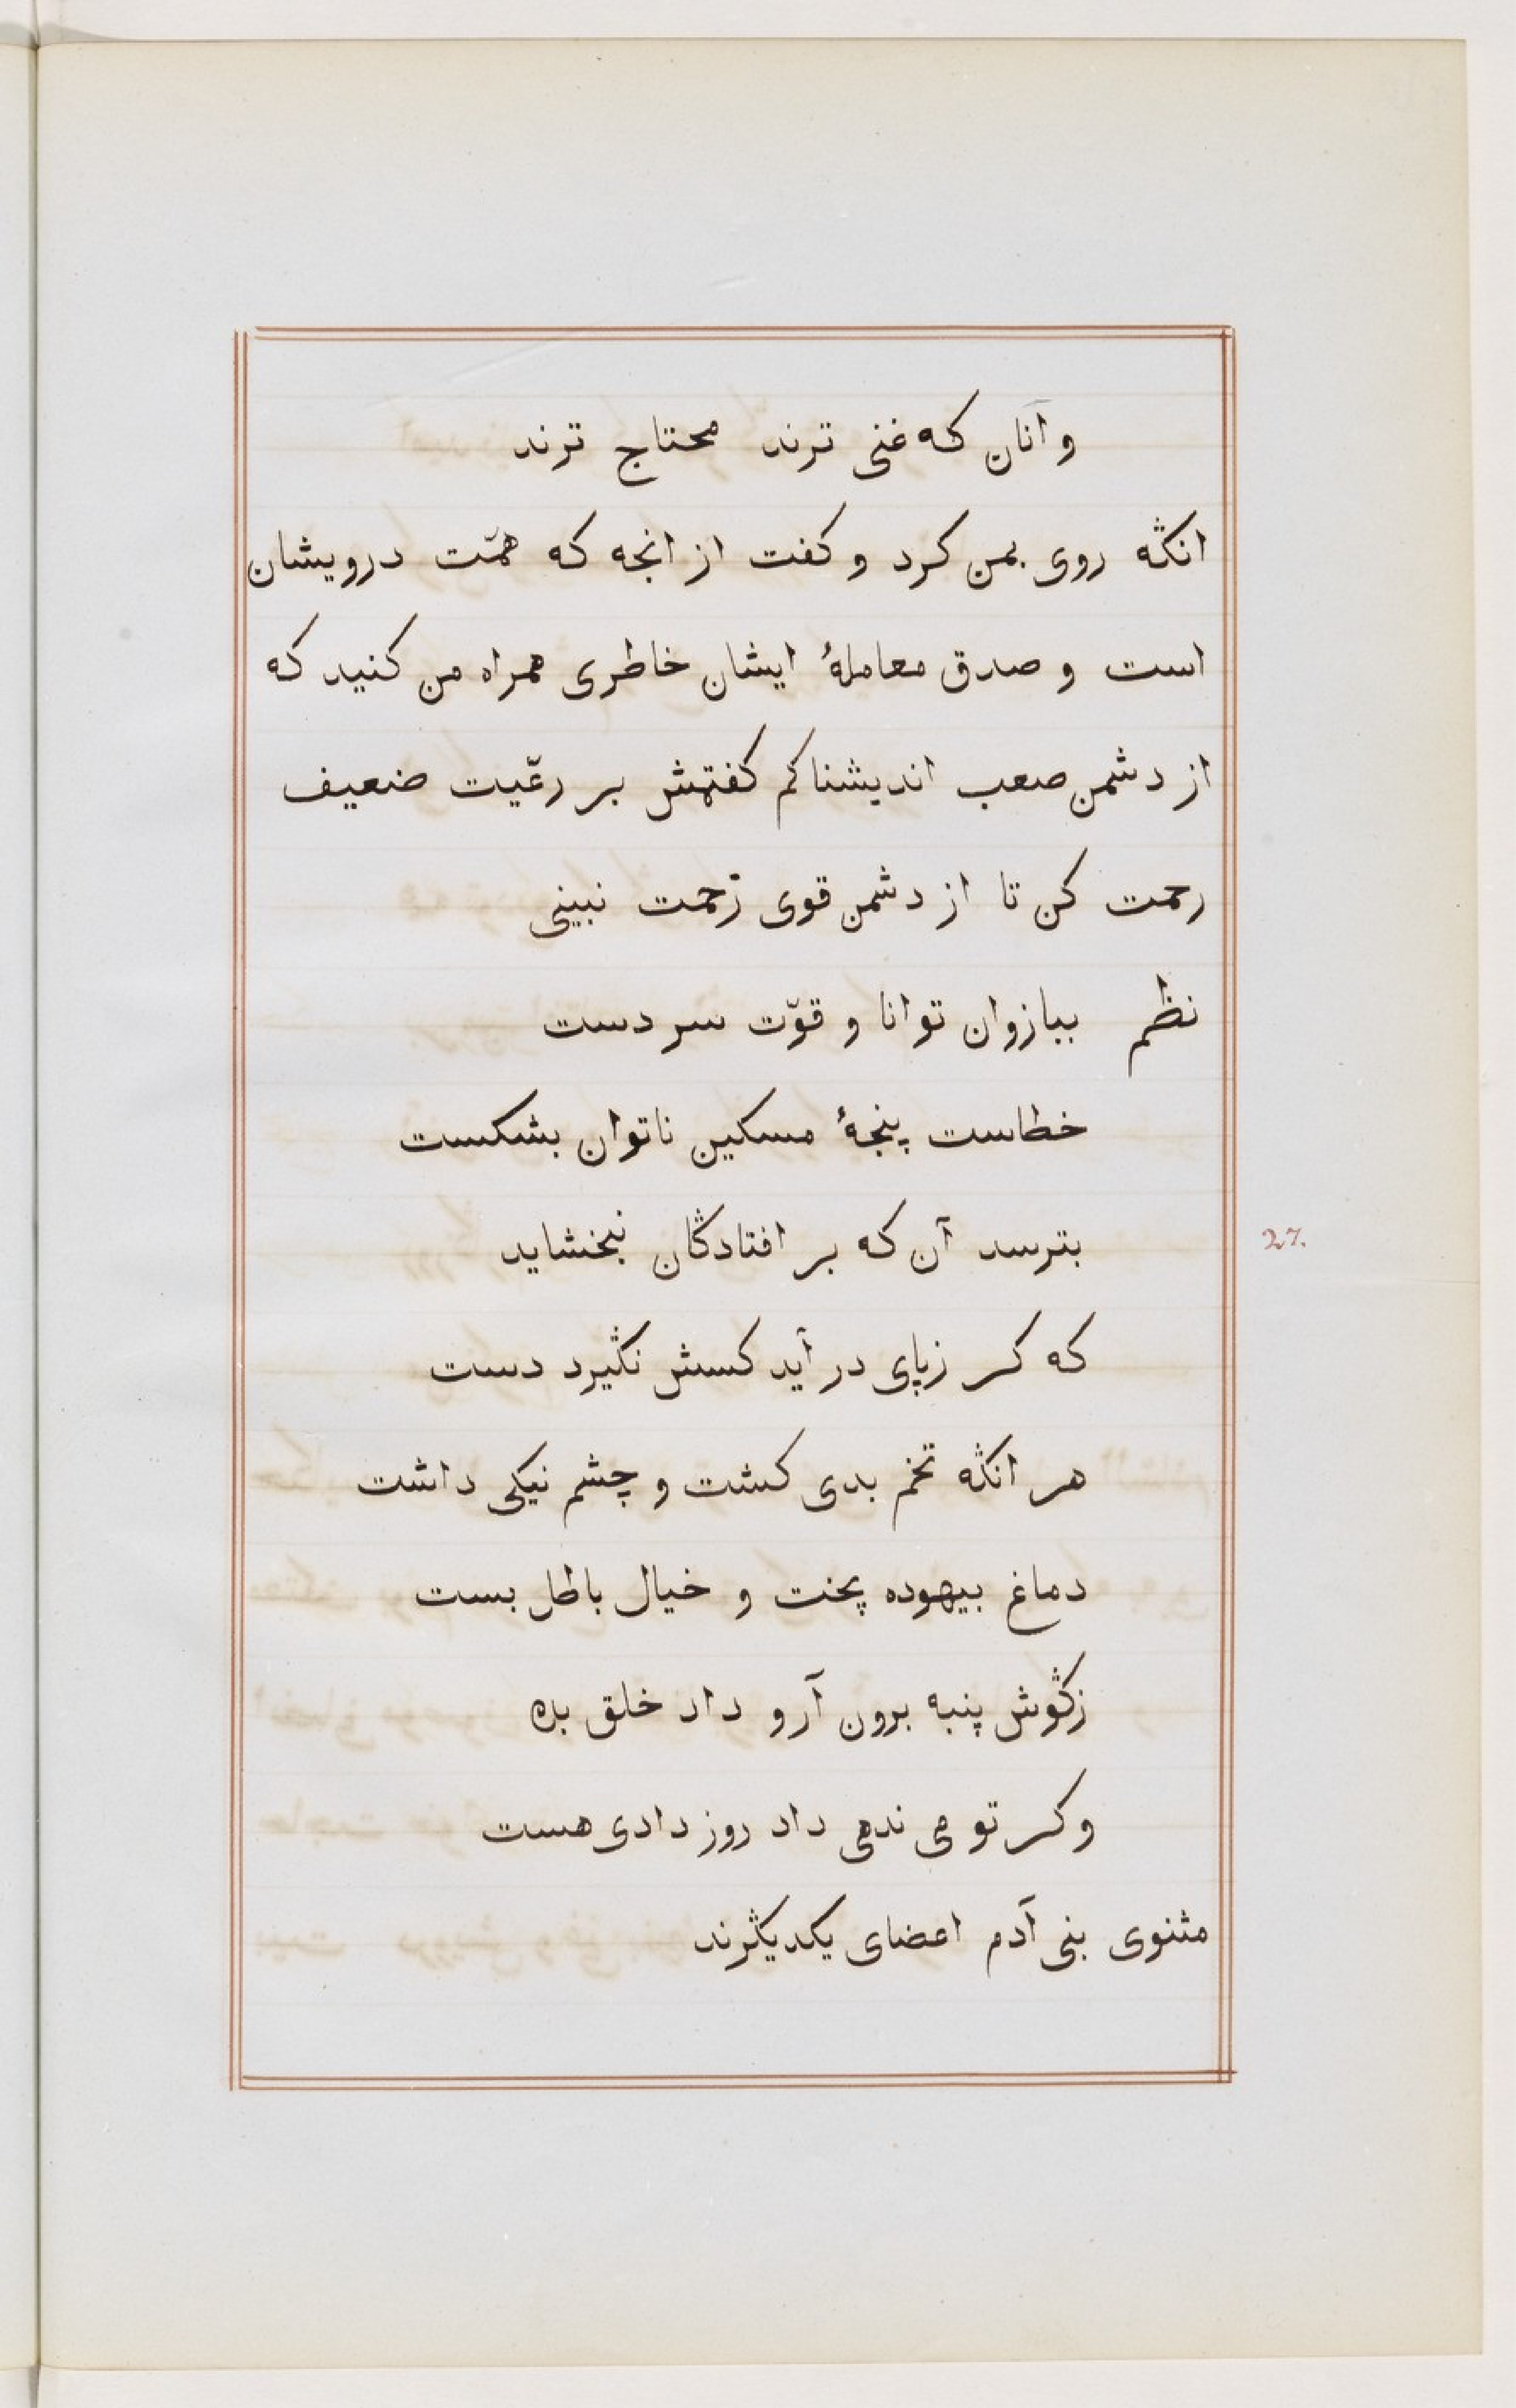 و آنان که غنی ترند محتاج ترند
انݣه روی بمن کرد و کفت از انجه که همّت درویشان
است و صدق معاملهٔ ایشان خاطری همراه من کنید که
از دشمن صعب اندیشناکم کفتمش بر رعّیت ضعیف
رحمت کن تا از دشمن قوی زحمت نبینی
نظم ببازوان توانا و قوّت سر دست
خطاست پنجهٔ مسکین ناتوان بشکست
بترسد آن که بر افتادݣان نبخشاید
که کر زپای در آید کسش نݣیرد دست
27.
هر انݣه تخم بدی کشت و چشم نیکی داشت
دماغ بیهوده پخت و خیال باطل بست
زݣوش پنبه برون آر و داد خلق بده
وکر تو می ندهی داد روز دادی هست
مثنوی بنی آدم اعضای یکدیݣرند